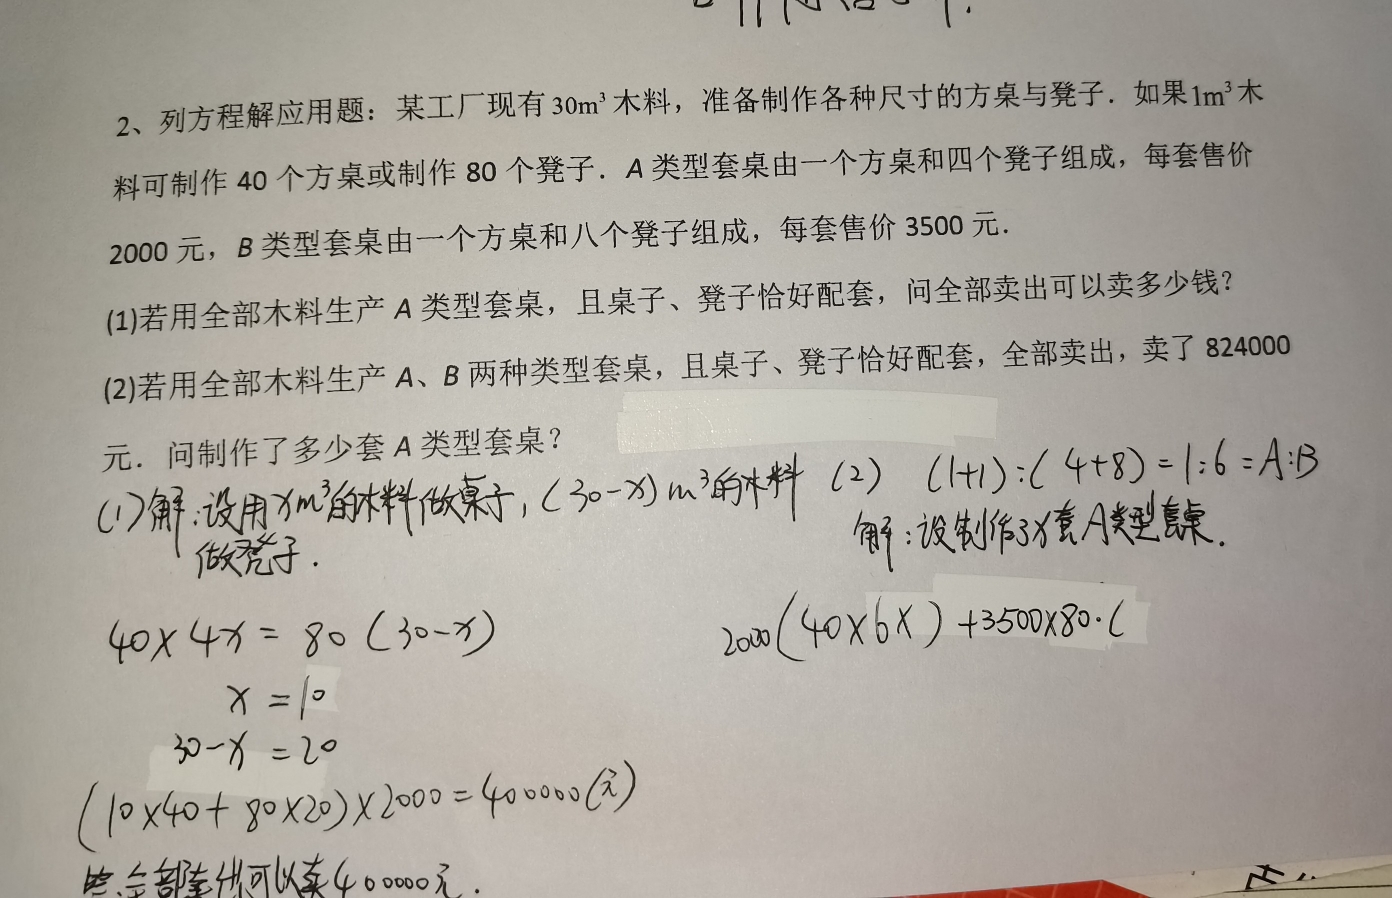 2、列方程解应用题：某工厂现有30m³木料，准备制作各种尺寸的方桌与凳子．如果1m³木
料可制作 40 个方桌或制作 80 个凳子．A 类型套桌由一个方桌和四个凳子组成，每套售价
2000 元，B 类型套桌由一个方桌和八个凳子组成，每套售价 3500 元．
(1)若用全部木料生产 A 类型套桌，且桌子、凳子恰好配套，问全部卖出可以卖多少钱？
(2)若用全部木料生产 A、B 两种类型套桌，且桌子、凳子恰好配套，全部卖出，卖了 824000
元．问制作了多少套 A 类型套桌？
(1)解：设用xm³的木料做桌子，(30-x)m³的木料
做凳子．
40×4x=80(30-x)
x=10
30-x=20
(10×40+80×20)×2000=400000(元)
全部卖出可以卖400000元．
(2) (1+1):(4+8)=1:6=A:B
解：设制作了x套A类型套桌．
2000(40×6x)+3500×80·(